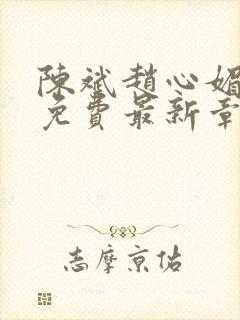 陳斌趙心媚
免費最新章
志摩京佑